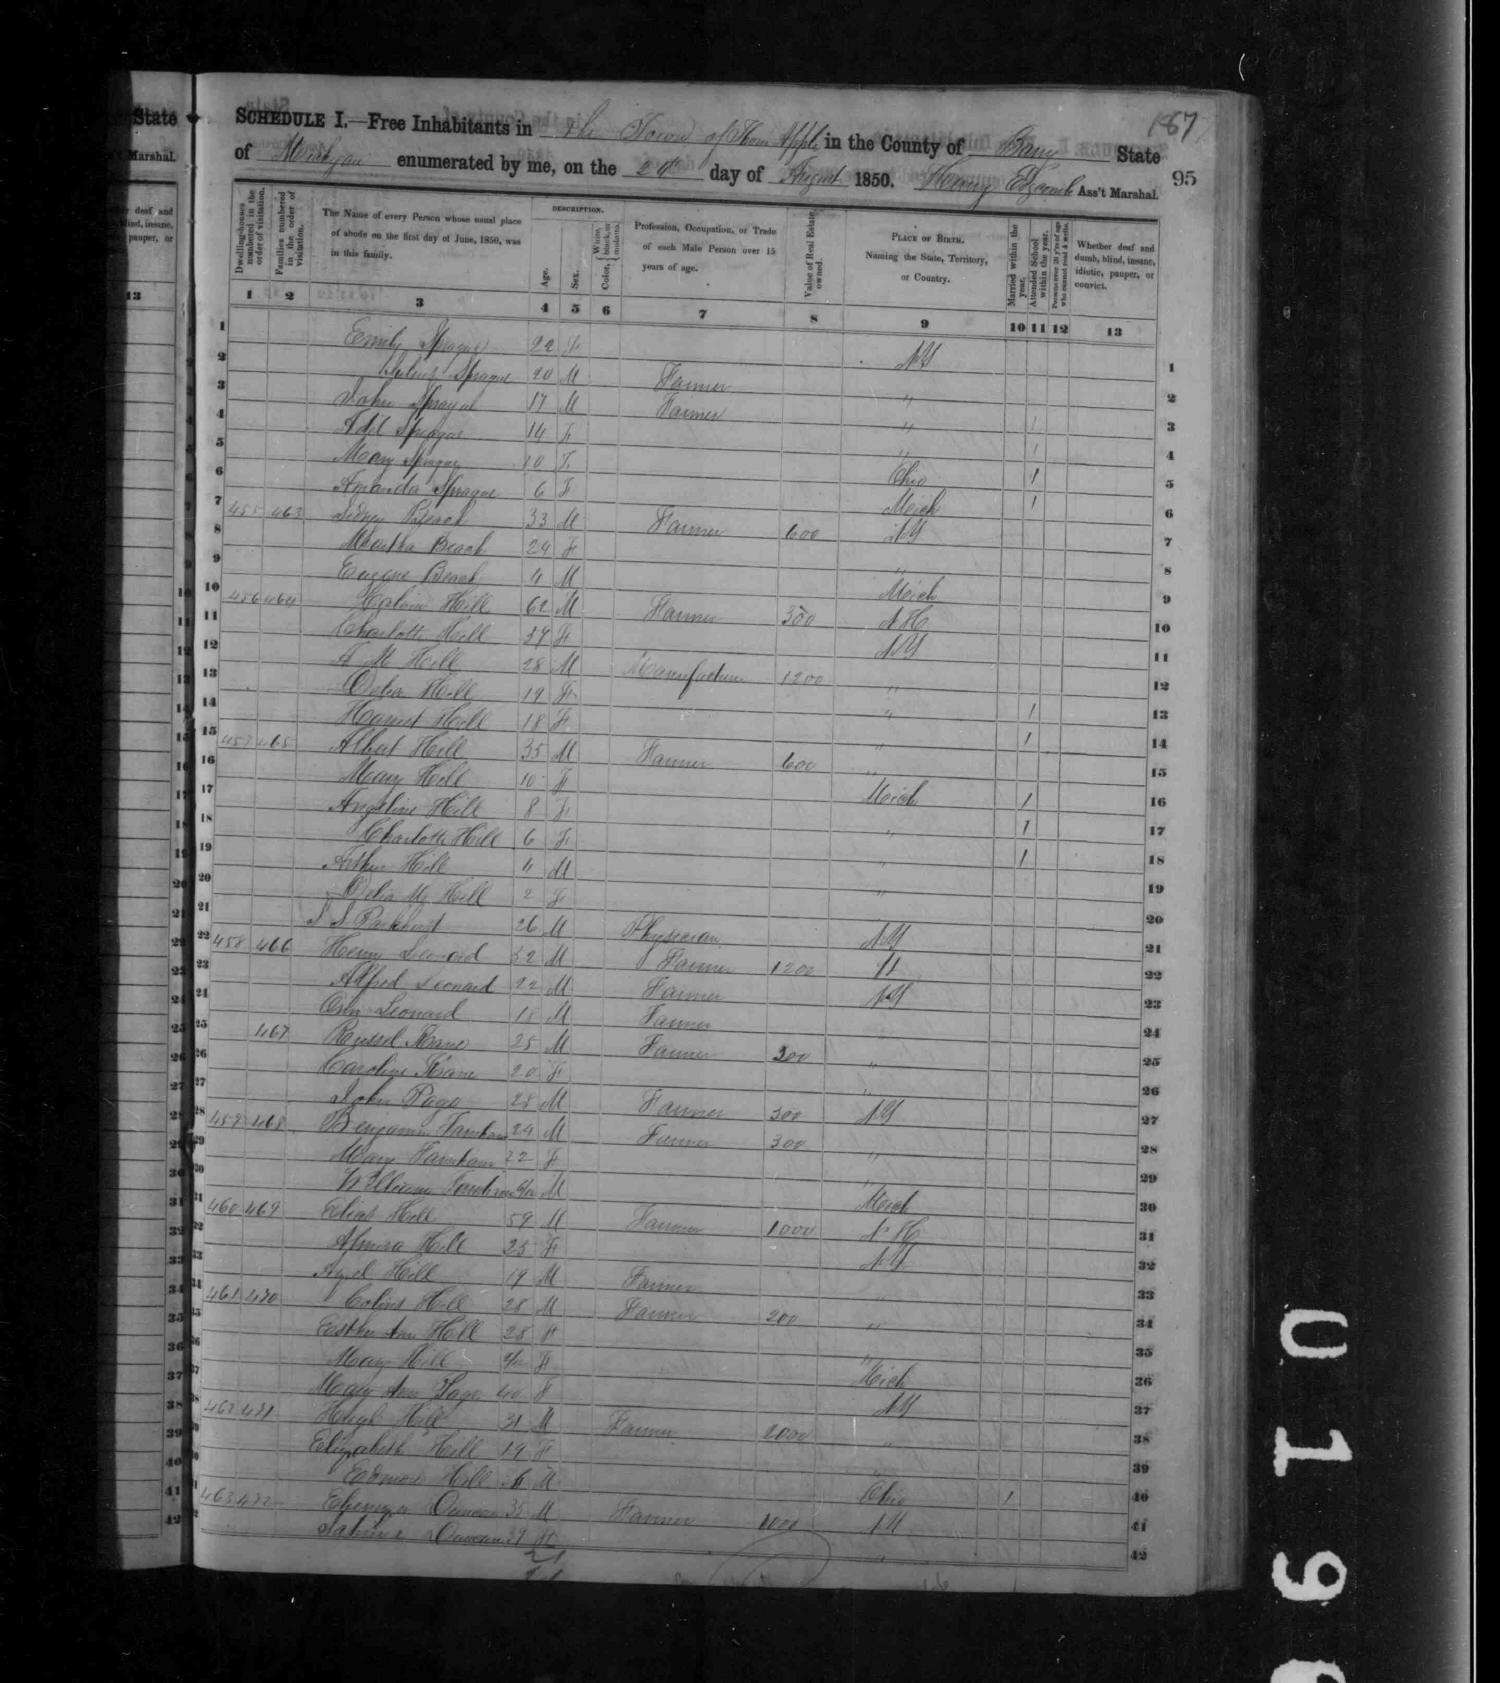 State
187
SCHEDULE I.—Free Inhabitants in the Town of Thorn Apple in the County of Barry State
of Michigan enumerated by me, on the 20th day of August 1850. Henry Edgcomb Ass't Marshal.
95
't Marshal.
Dwelling-houses numbered in the order of visitation.
Families numbered in the order of visitation.
The Name of every Person whose usual place of abode on the first day of June, 1850, was in this family.
DESCRIPTION.
Age.
Sex.
Color, { White, black, or mulatto.
Profession, Occupation, or Trade of each Male Person over 15 years of age.
Value of Real Estate owned.
PLACE OF BIRTH.
Naming the State, Territory, or Country.
Married within the year.
Attended School within the year.
Persons over 20 y'rs of age who cannot read & write.
Whether deaf and dumb, blind, insane, idiotic, pauper, or convict.
1 2 3 4 5 6 7 8 9 10 11 12 13
1 Emily Sprague 22 F NY 1
2 Julius Sprague 20 M Farmer " 2
3 John Sprague 17 M Farmer " 3
4 Sprague 14 F " 1 4
5 Mary Sprague 10 F Ohio 1 5
6 Amanda Sprague 6 F Mich 1 6
7 455 463 Sidney Beach 33 M Farmer 600 NY 7
8 Martha Beach 24 F " 8
9 Eugene Beach 4 M Mich 9
10 456 464 Calvin Hill 62 M Farmer 300 NH 10
11 Charlotte Hill 57 F NY 11
12 A M Hill 28 M Manufacturer 1200 " 12
13 Delia Hill 19 F " 1 13
14 Harriet Hill 18 F " 1 14
15 457 465 Albert Hill 35 M Farmer 600 " 15
16 Mary Hill 10 F Mich 1 16
17 Angeline Hill 8 F " 1 17
18 Charlotte Hill 6 F " 1 18
19 Arthur Hill 4 M " 19
20 Delia M Hill 2 F " 20
21 S S Parkhurst 26 M Physician NY 21
22 458 466 Henry Leonard 52 M Farmer 1200 22
23 Alfred Leonard 22 M Farmer NY 23
24 Orin Leonard 18 M Farmer " 24
25 467 Russel Kane 25 M Farmer 300 " 25
26 Caroline Kane 20 F " 26
27 John Page 28 M Farmer 300 NY 27
28 459 468 Benjamin 24 M Farmer 300 " 28
29 Mary 22 F " 29
30 William M Mich 30
31 460 469 Elias Hill 59 M Farmer 1000 NH 31
32 Almira Hill 25 F NY 32
33 Azel Hill 19 M Farmer " 33
34 461 470 Colins Hill 28 M Farmer 200 " 34
35 Esther Ann Hill 28 F " 35
36 Mary Hill F Mich 36
37 Mary Ann 40 F NY 37
38 462 471 Hugh Hill 31 M Farmer 2000 " 38
39 Elizabeth Hill 19 F " 39
40 Edmore Hill 6 M Ohio 1 40
41 463 472 Ebenezer Duncan 35 M Farmer 1000 NY 41
42 Duncan 39 F " 42
0196